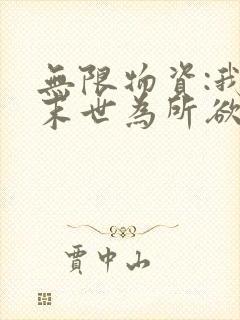 無限物資:我
末世為所欲
賈中山